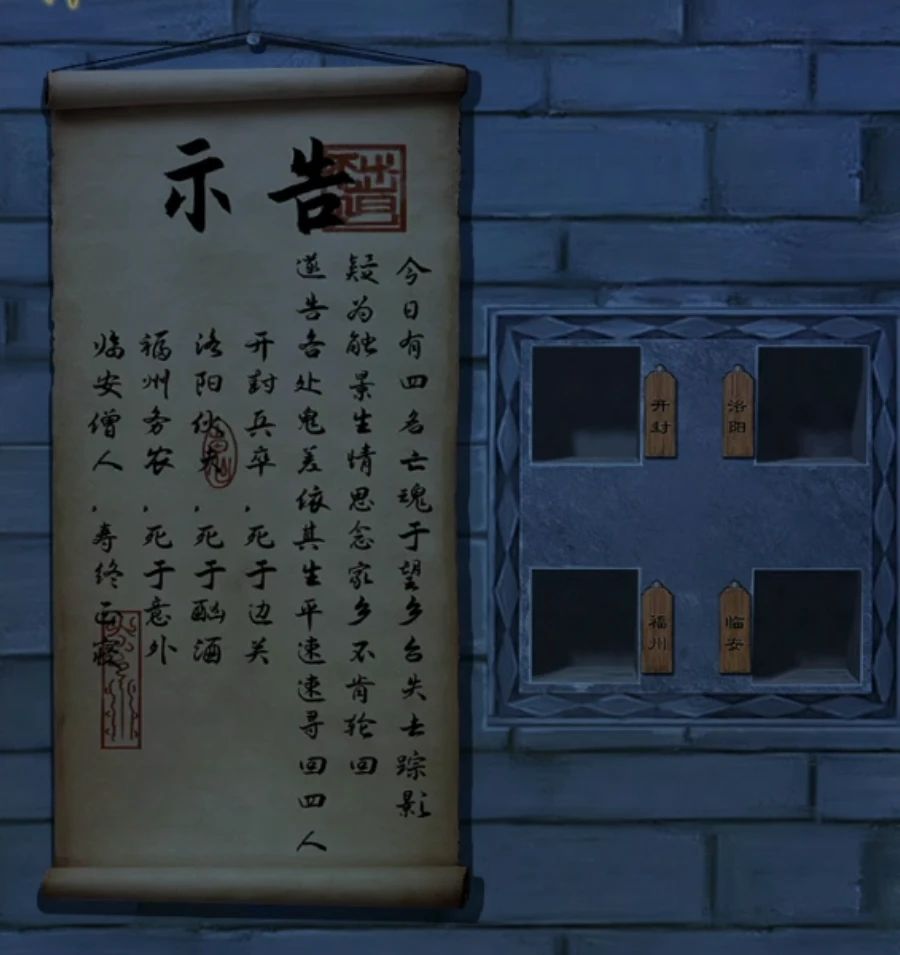 告示
今日有四名亡魂于望乡台失去踪影
疑为触景生情思念家乡不肯轮回
遂告各处鬼差依其生平速速寻回四人
开封兵卒,死于边关
洛阳伙夫,死于酗酒
福州务农,死于意外
临安僧人,寿终正寝
开封
洛阳
福州
临安